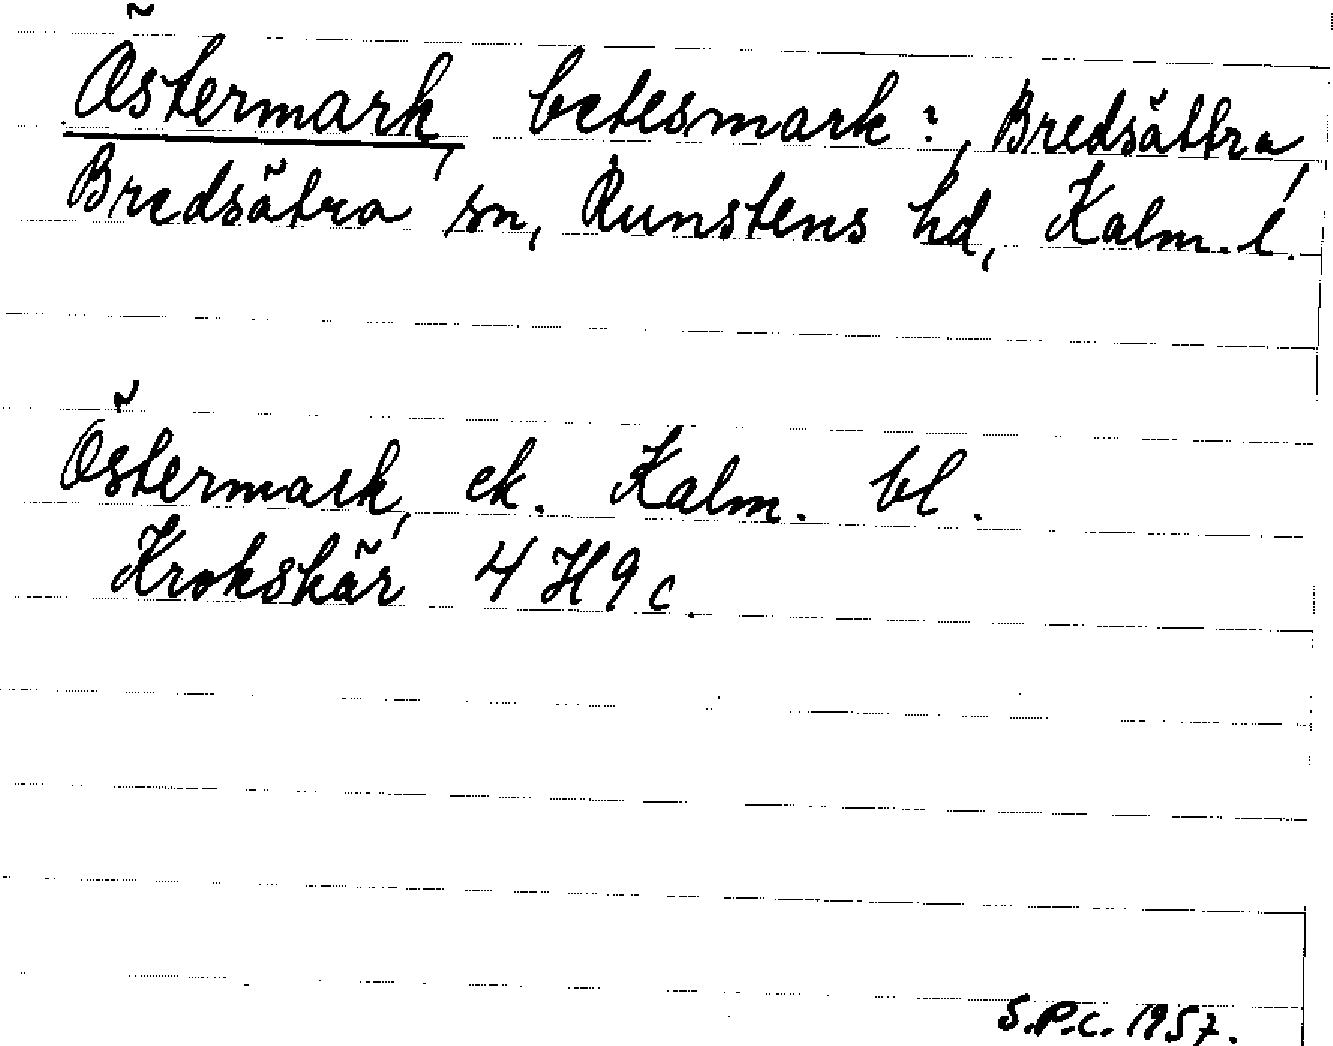 Östermark, betesmark?, Bredsättra,
Bredsätra sn, Runstens hd, Kalm. l.
Östermark, ek. Kalm. bl.
Krokskär 4 H 9 c.
S.P.C. 1957.